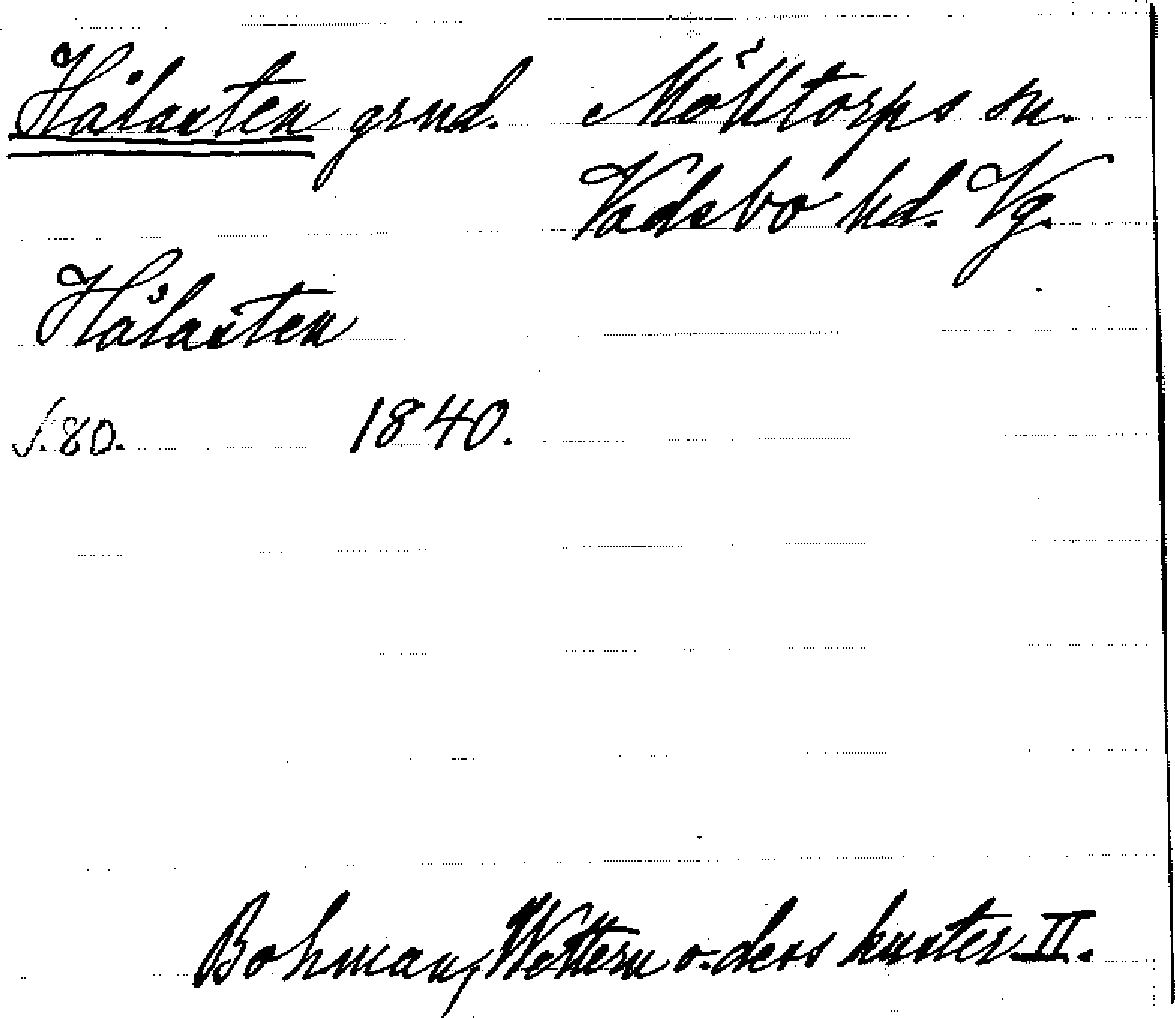 Hålasten grnd. Mölltorps sn.
Vadsbo hd. Vg.
Hålasten
s. 80. 1840.
Bohman, Wettern o. dess kuster II.